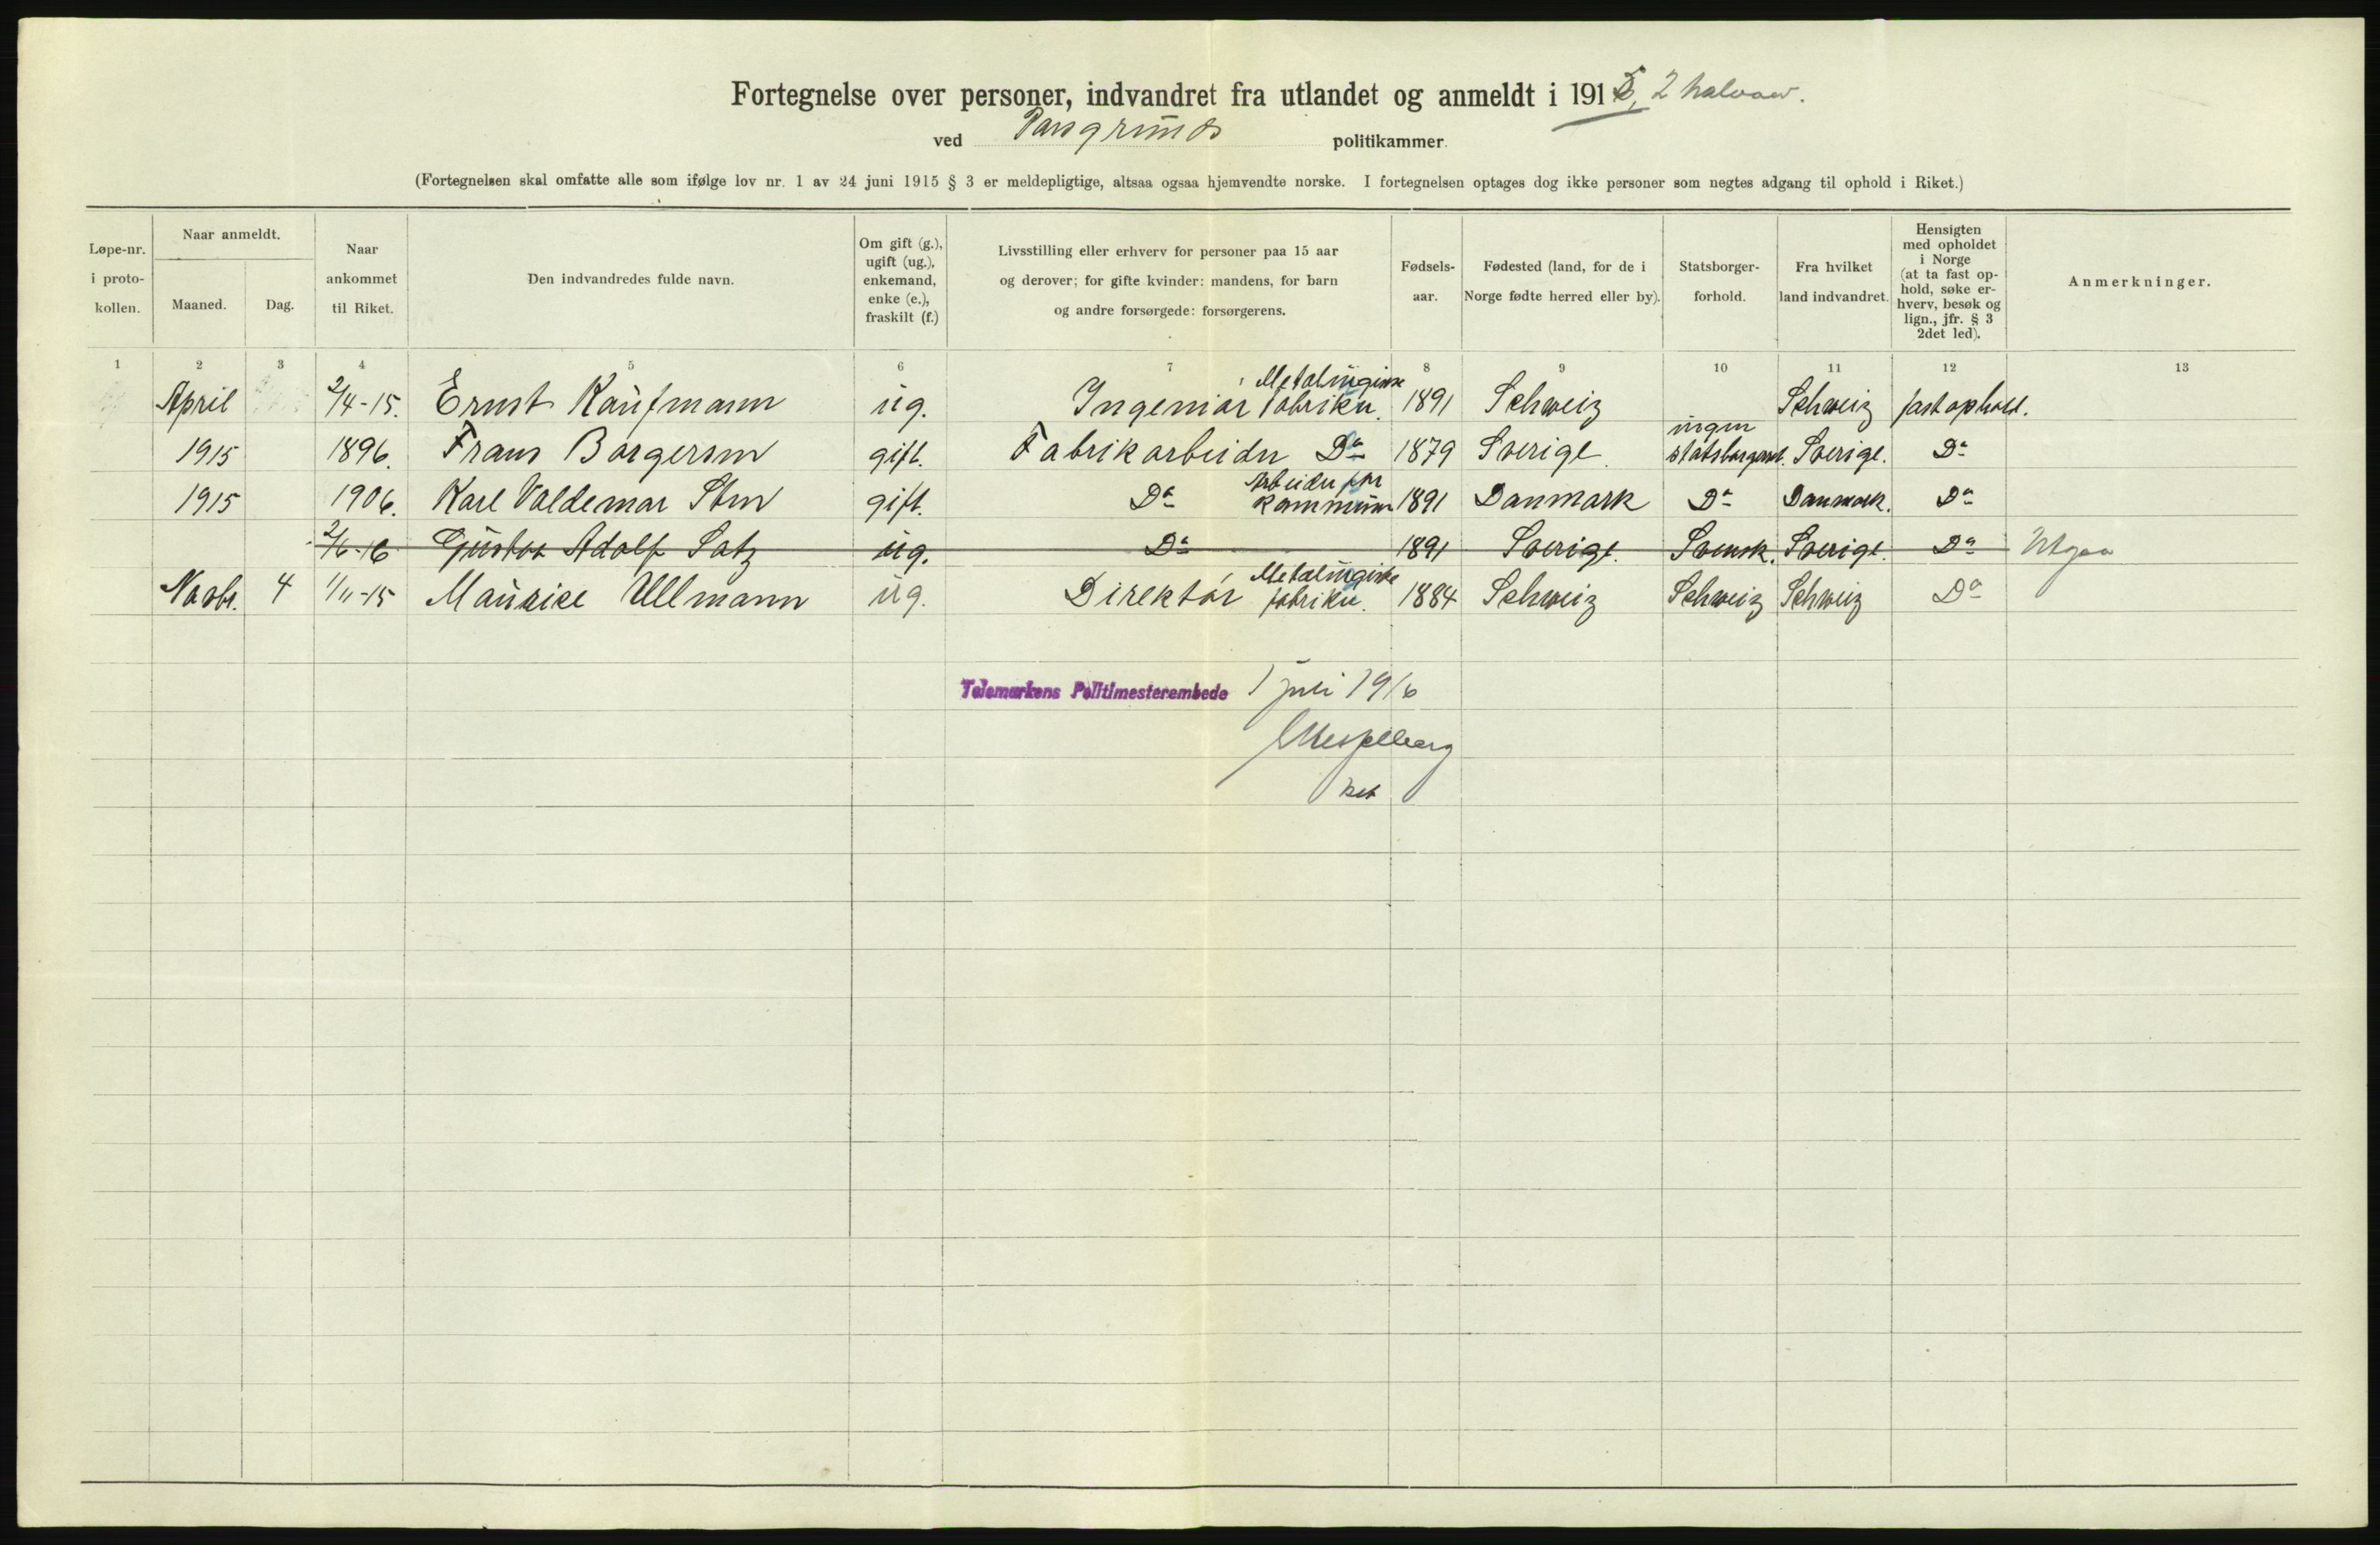 Fortegnelse over personer, indvandret fra utlandet og anmeldt i 1915, 2 halvaar.
ved Porsgrunds politikammer.
(Fortegnelsen skal omfatte alle som ifølge lov nr. 1 av 24 juni 1915 § 3 er meldepligtige, altsaa ogsaa hjemvendte norske. I fortegnelsen optages dog ikke personer som negtes adgang til ophold i Riket.)
Løpe-nr. i proto-kollen.
Naar anmeldt.
Maaned. Dag.
Naar ankommet til Riket.
Den indvandredes fulde navn.
Om gift (g.), ugift (ug.), enkemand, enke (e.), fraskilt (f.)
Livsstilling eller erhverv for personer paa 15 aar
og derover; for gifte kvinder: mandens, for barn
og andre forsørgede: forsørgerens.
Fødsels-aar.
Fødested (land, for de i Norge fødte herred eller by).
Statsborger-forhold.
Fra hvilket land indvandret.
Hensigten med opholdet i Norge (at ta fast op-hold, søke er-hverv, besøk og lign., jfr. § 3 2det led).
Anmerkninger.
1 2 3 4 5 6 7 8 9 10 11 12 13
April 2/4-15. Ernst Kaufmann ug. Ingeniør Metalurgiske fabriker. 1891 Schweiz Schweiz fast ophold.
1915 1896. Frans Borgersen gift. Fabrikarbeider Do 1879 Sverige. ingen statsborgeret. Sverige. Do
1915 1906. Karl Valdemar Sten gift. Do Arbeider for kommunen 1891 Danmark Do Danmark. Do
2/6-16 Gustav Adolf Satz ug. Do 1891 Sverige. Svensk. Sverige. Do Utgaa
Novbr. 4 1/11-15 Maurice Ullmann ug. Direktør Metalurgiske fabriker. 1884 Schweiz Schweiz Schweiz Do
Telemarkens Politimesterembede 1 juli 1916